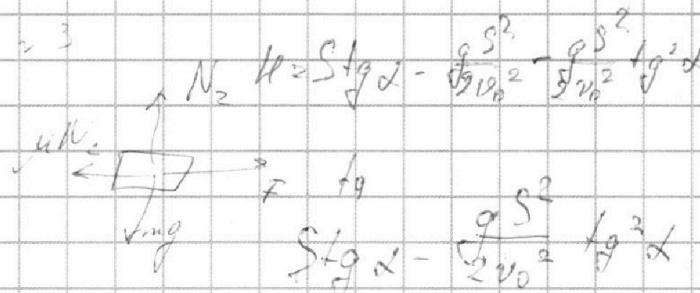 N₂ H = S tg α - gS²/2v₀² - gS²/2v₀² tg² α
μN₂
F tg
mg
S tg α - gS²/2v₀² tg² α